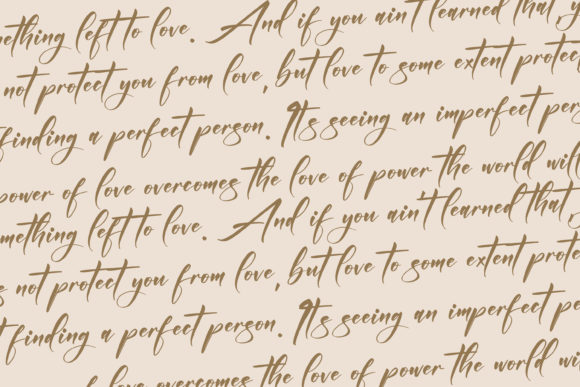 mething left to love. And if you ain't learned that, y
not protect you from love, but love to some extent protect
finding a perfect person. It's seeing an imperfect pers
power of love overcomes the love of power the world will
omething left to love. And if you ain't learned that,
s not protect you from love, but love to some extent prote
t finding a perfect person. It's seeing an imperfect pe
of love overcomes the love of power the world wi